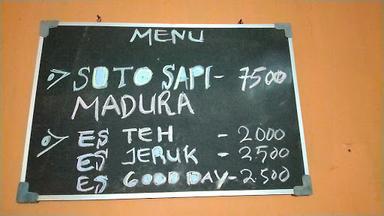 MENU
SOTO SAPI - 7500
MADURA
ES TEH - 2000
ES JERUK - 2500
ES GOOD DAY - 2.500